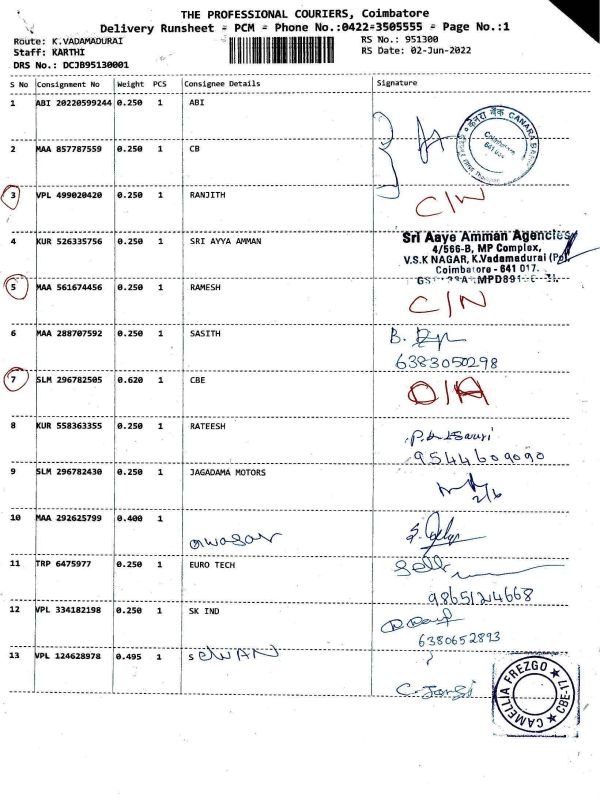 THE PROFESSIONAL COURIERS, Coimbatore
Delivery Runsheet - PCM - Phone No.:0422-3505555 - Page No.:1
Route: K.VADAMADURAI
RS No.: 951300
Staff: KARTHI
RS Date: 02-Jun-2022
DRS No.: DCJB95130001
S No Consignment No Weight PCS Consignee Details Signature
1 ABI 20220599244 0.250 1 ABI
केनरा बैंक CANARA BANK
Coimbatore
641
2 MAA 857787559 0.250 1 CB
3 VPL 499020420 0.250 1 RANJITH C/N
4 KUR 526335756 0.250 1 SRI AYYA AMMAN
Sri Aaye Amman Agencies
4/566-B, MP Complex,
V.S.K NAGAR, K.Vadamadurai (Po),
Coimbatore - 641 017.
5 MAA 561674456 0.250 1 RAMESH C/N
6 MAA 288707592 0.250 1 SASITH B.
6383050298
7 SLM 296782505 0.620 1 CBE
8 KUR 558363355 0.250 1 RATEESH
9544609090
9 SLM 296782430 0.250 1 JAGADAMA MOTORS
2/6
10 MAA 292625799 0.400 1
11 TRP 6475977 0.250 1 EURO TECH
9865124668
12 VPL 334182198 0.250 1 SK IND
6380652893
13 VPL 124628978 0.495 1 S
CAMELLIA FREZGO ★ CBE-17 ★